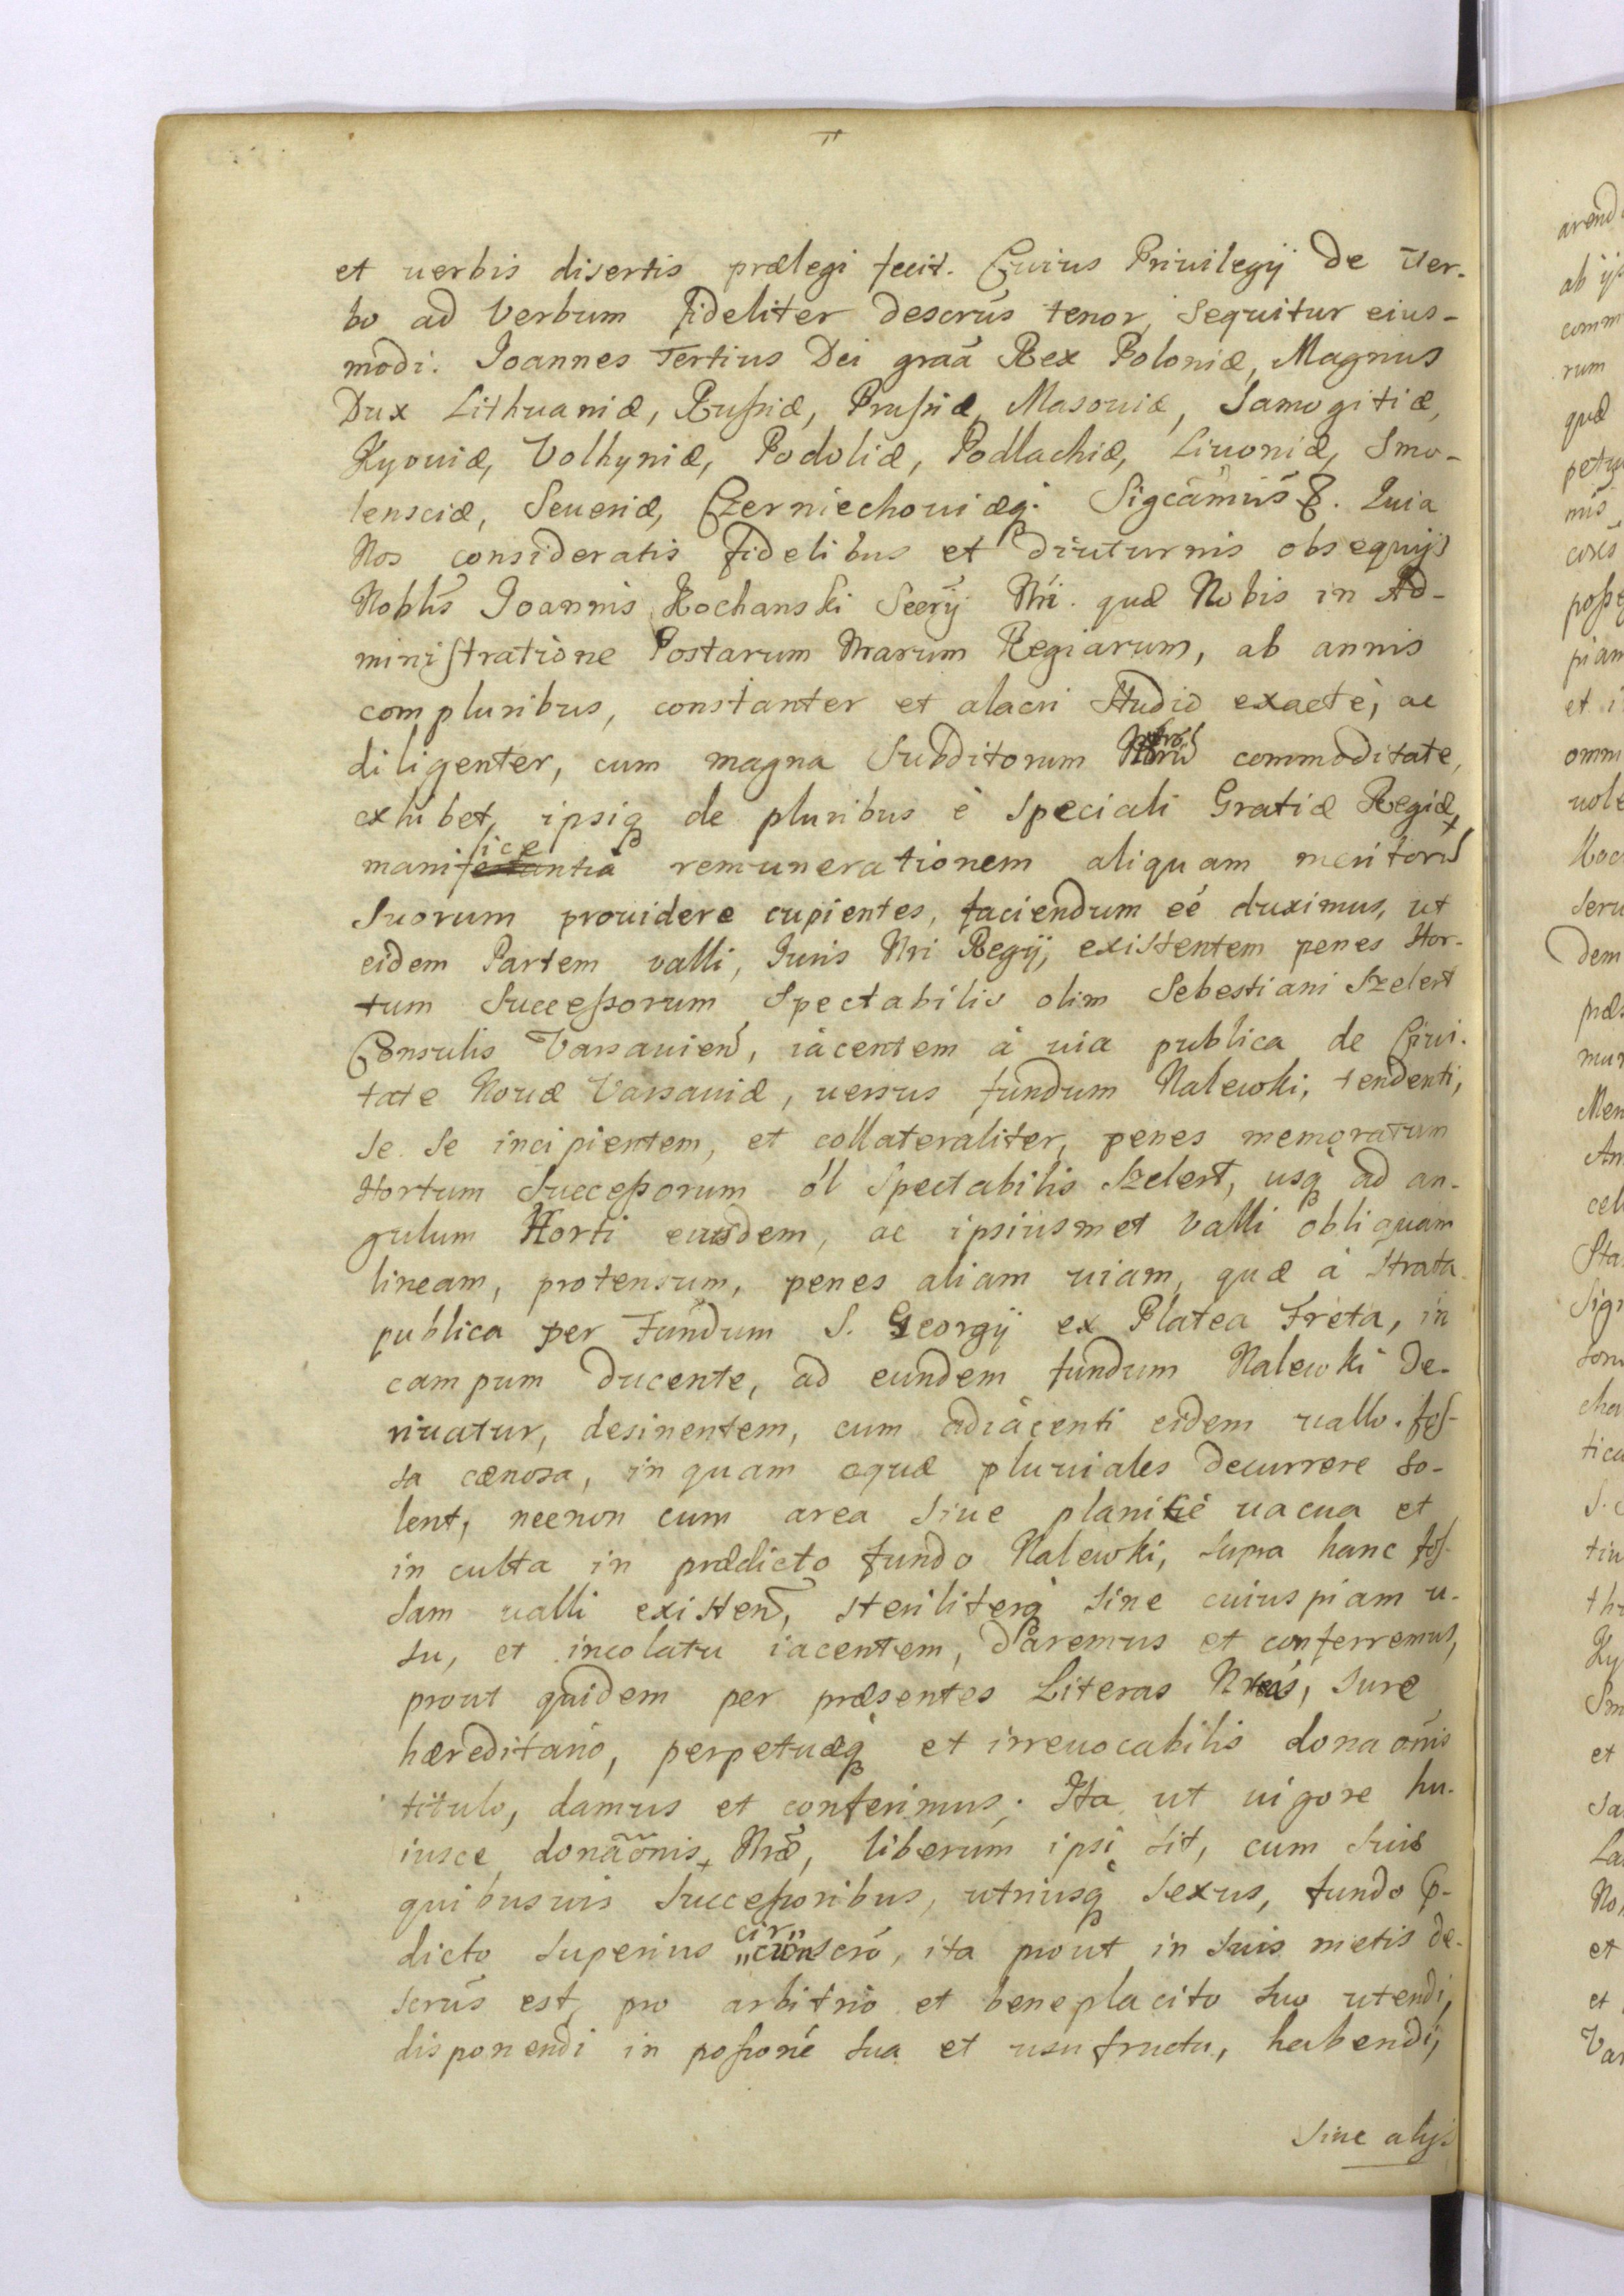 et uerbis disertis prælegi fecit. Cuius Priuilegij de Ver-
bo ad Verbum fideliter descrūs tenor, sequitur eius-
modi. Joannes Tertius Dei graã Rex Poloniæ, Magnus
Dux Lithuaniæ, Rußiæ, Prußiæ, Masouiæ, Samogitiæ,
Kyouiæ, Volhyniæ, Podoliæ, Podlachiæ, Liuoniæ, Smo-
lensciæ, Seueriæ, Czerniechouiæq̣. Sigcāmūs &. Quia
Nos consideratis fidelibus et diuturnis obsequijs
Noblīs Joannis Kochanski Secrīj Nri. quæ Nobis in Ad-
ministratione Postarum Nrarum Regiarum, ab annis
compluribus, constanter et alacri Studio exactè, ac
diligenter, cum magna Subditorum Nrorū commoditate,
exhibet, ipsiq̣ de pluribus è speciali Gratiæ Regiæ
munificentia remunerationem aliquam meritorū
Suorum prouidere cupientes, faciendum eé duximus, ut
eidem Partem valli, Juris Nri Regij, existentem penes Hor-
tum Succeßorum Spectabilis olim Sebestiani Szelert
Consulis Varsauien̄, iacentem à uia publica de Ciui-
tate Nouæ Varsauiæ, uersus fundum Nalewki, tendenti,
Se se incipientem, et collateraliter, penes memoratum
Hortum Succeßorum ol Spectabilis Szelert, usq̣ ad an-
gulum Horti eiusdem, ac ipsiusmet Valli obliquam
lineam, protensum, penes aliam uiam, quæ à Strata
publica per Fundum S. Georgij ex Platea Freta, in
campum ducente, ad eundem fundum Nalewki de-
riuatur, desinentem, cum adiacenti eidem uallo. fos-
sa cænosa, in quam aquæ pluuiales decurrere so-
lent, necnon cum area siue planitie uacua et
in culta in prædicto fundo Nalewki, supra hanc fos-
sam ualli existen̄, steriliterq̣ sine cuiuspiam u-
su, et incolatu iacentem, daremus et conferremus,
prout quidem per præsentes Literas Nras, Jure
hæreditario, perpetuæq̣ et irreuocabilis donaōnis
titulo, damus et conferimus. Ita ut uigore hu-
iusce donāōnis Nræ, liberum ipsi sit, cum suis
quibusuis Succeßoribus, utriusq̣ Sexus, fundo p̱-
dicto superius circumscrō, ita prout in suis metis de-
scrūs est, pro arbitrio et beneplacito suo utendi,
disponendi in poßoné sua et usufructu, habendi,
Siue alijs